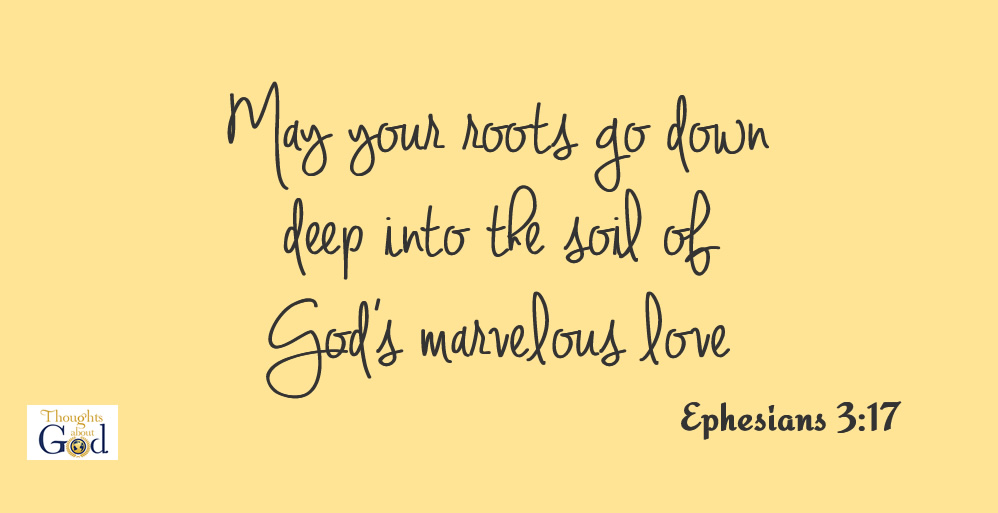 May your roots go down
deep into the soil of
God's marvelous love
Ephesians 3:17
Thoughts
about
God